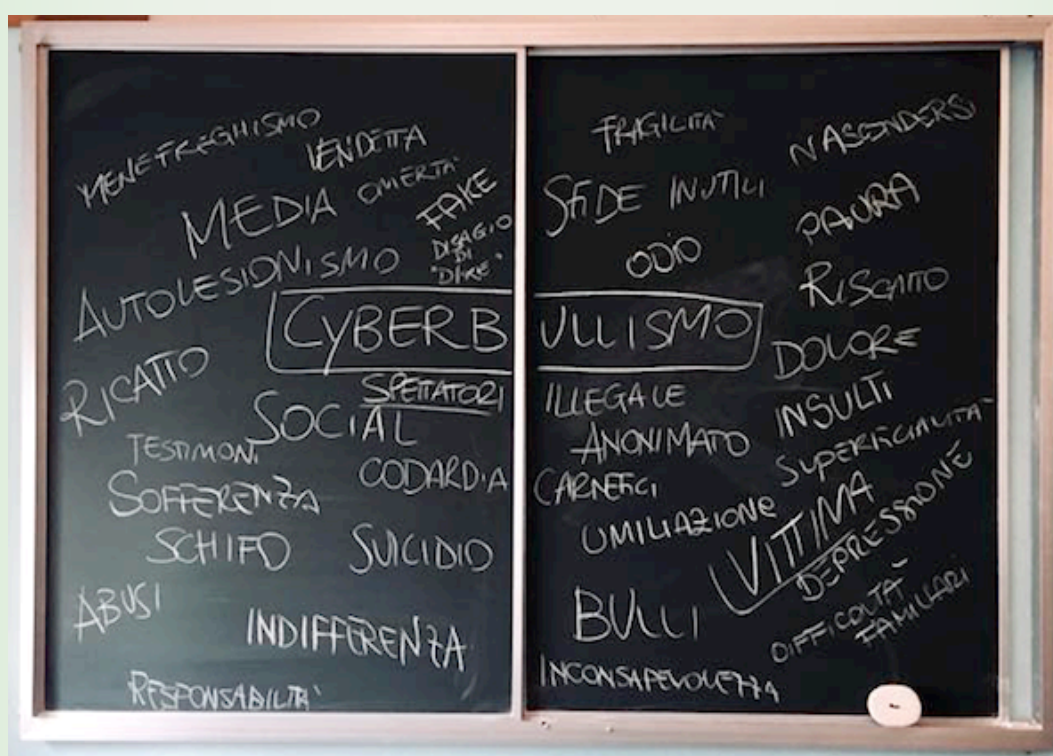 MENEFREGHISMO
VENDETTA
OMERTÀ
MEDIA
FAKE
DISAGIO
DI
"DIRE"
AUTOLESIONISMO
CYBERBULLISMO
RICATTO
SPETTATORI
SOCIAL
TESTIMONI
CODARDIA
SOFFERENZA
SCHIFO
SUICIDIO
ABUSI
INDIFFERENZA
RESPONSABILITÀ
FRAGILITÀ
NASCONDERSI
SFIDE INUTILI
PAURA
ODIO
RISCATTO
DOLORE
ILLEGALE
INSULTI
ANONIMATO
SUPERFICIALITÀ
CARNEFICI
UMILIAZIONE
VITTIMA
DEPRESSIONE
BULLI
DIFFICOLTÀ
FAMILIARI
INCONSAPEVOLEZZA